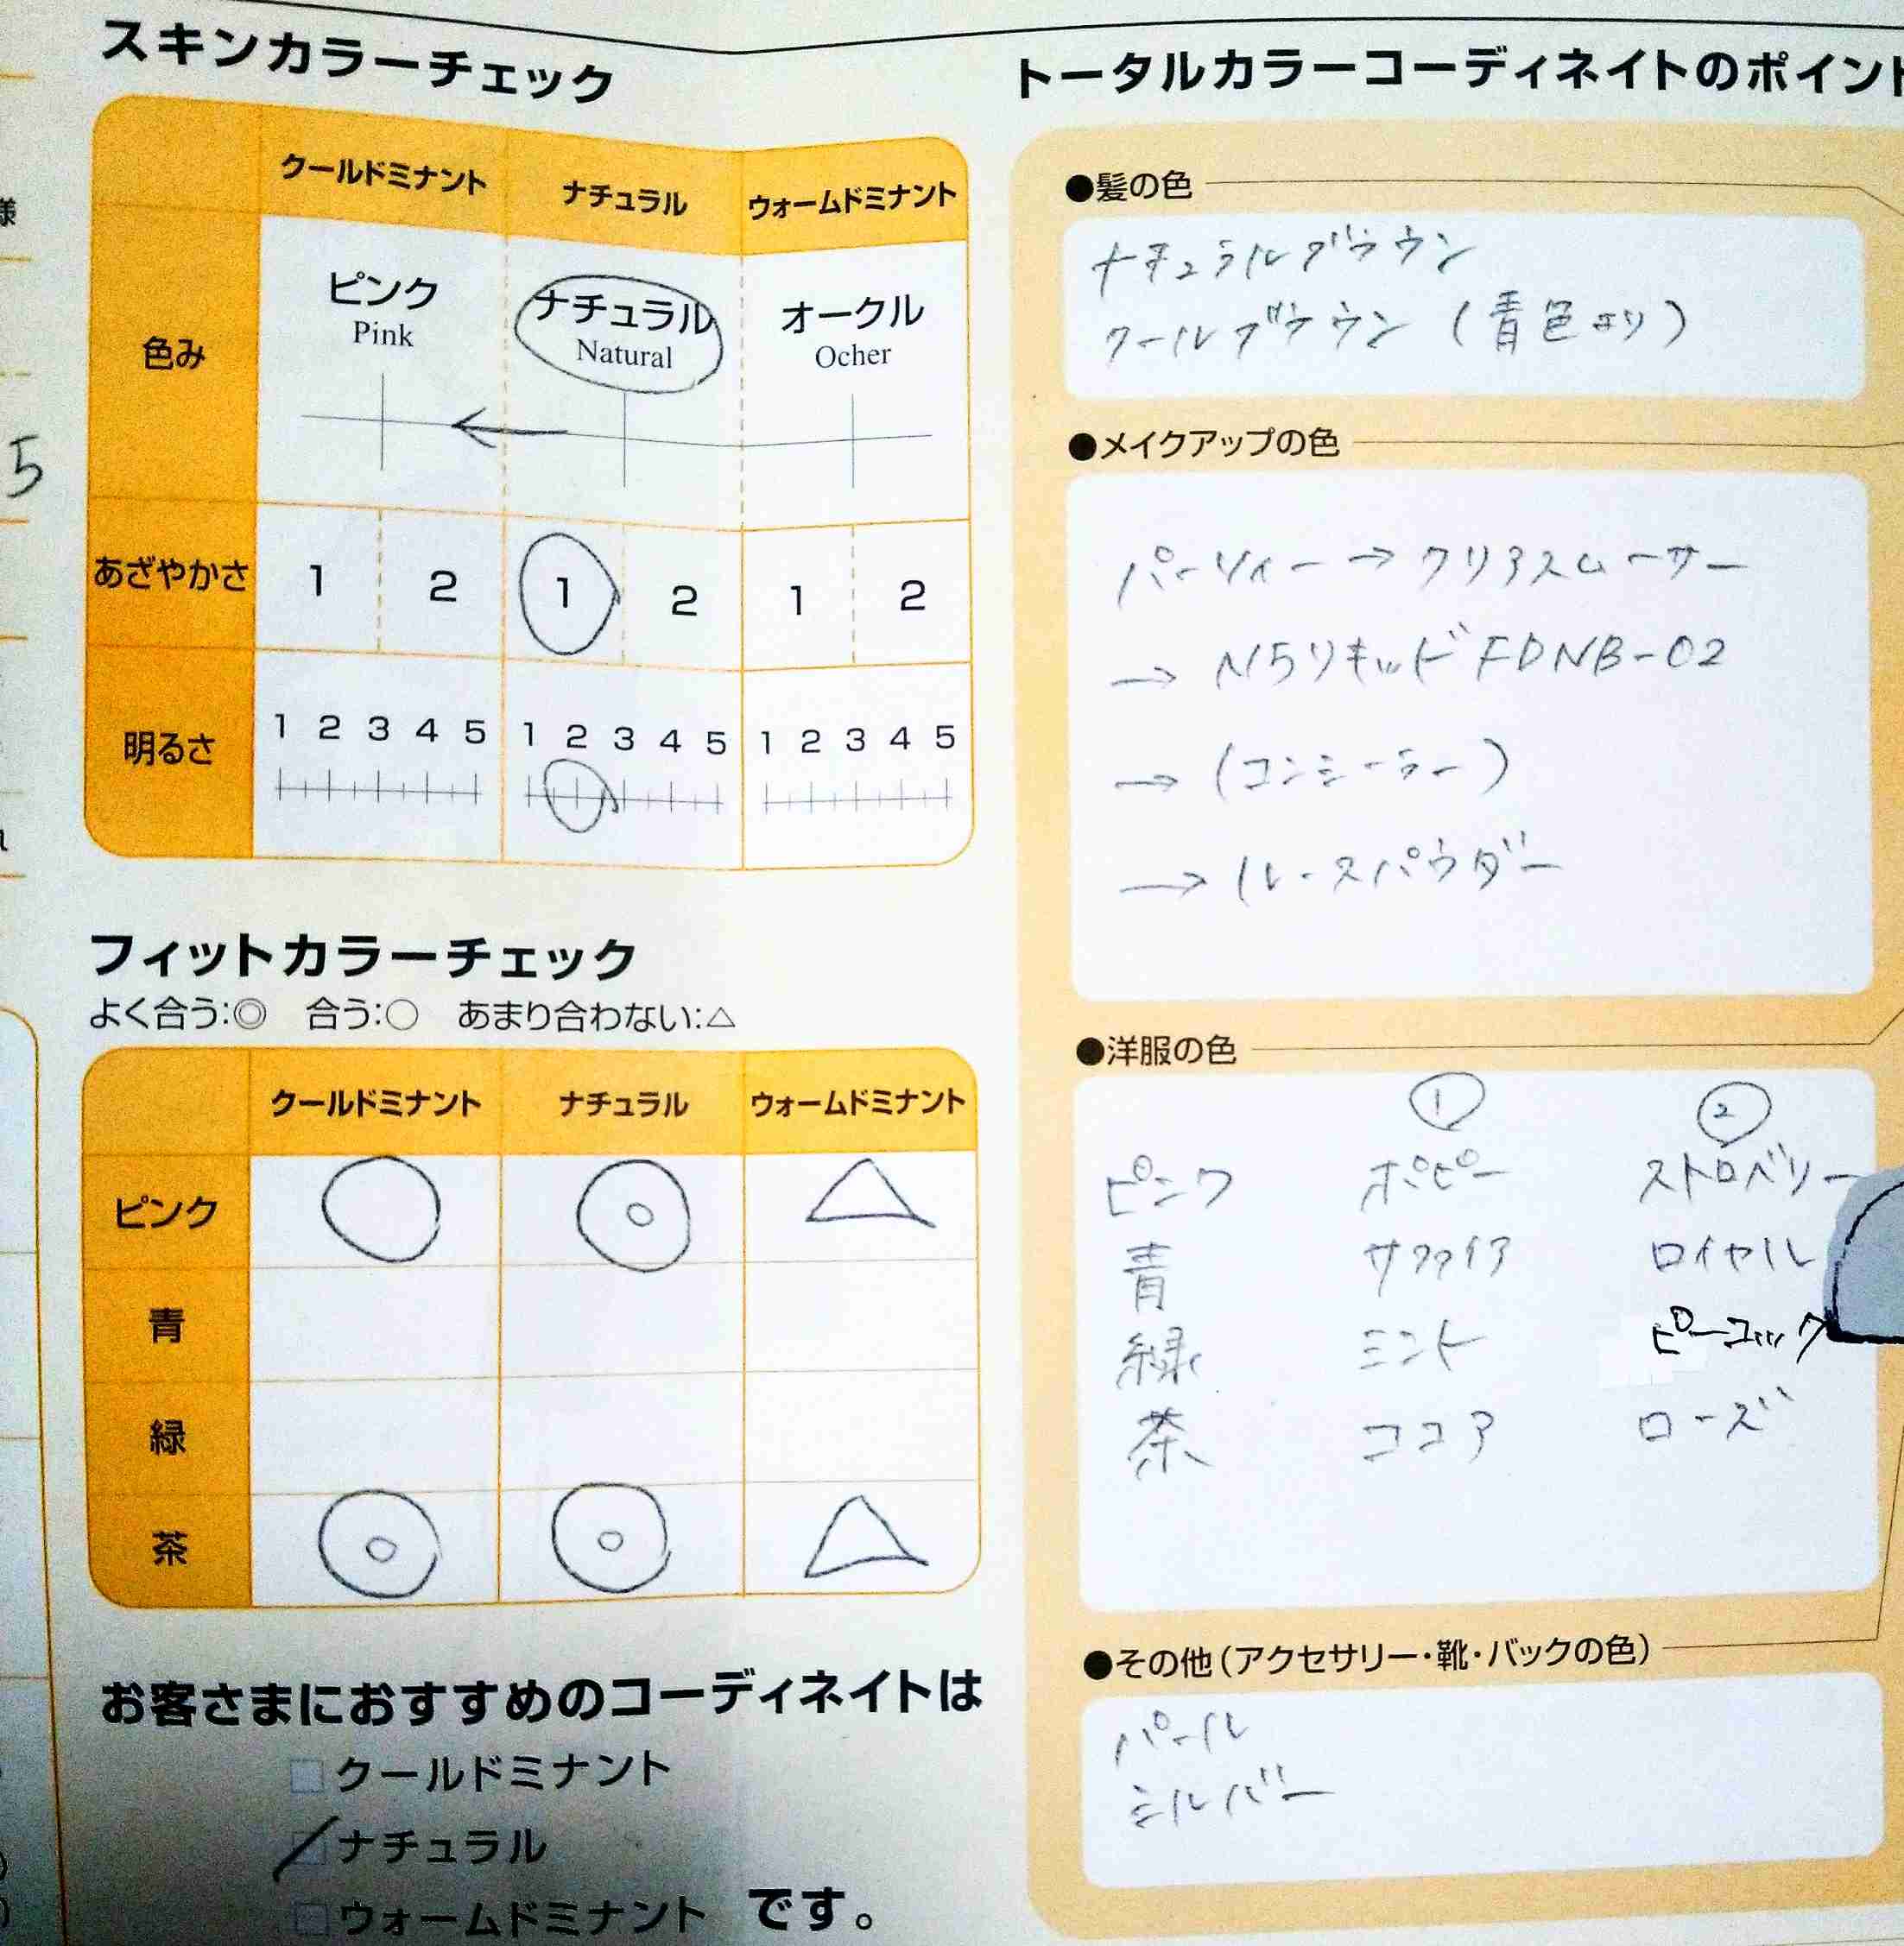 スキンカラーチェック
クールドミナント ナチュラル ウォームドミナント
色み
ピンク ナチュラル オークル
Pink Natural Ocher
あざやかさ 1 2 1 2 1 2
明るさ 1 2 3 4 5 1 2 3 4 5 1 2 3 4 5
フィットカラーチェック
よく合う:◎ 合う:○ あまり合わない:△
クールドミナント ナチュラル ウォームドミナント
ピンク ○ ◎ △
青
緑
茶 ◎ ◎ △
お客さまにおすすめのコーディネイトは
クールドミナント
ナチュラル
ウォームドミナント です。
様
5
トータルカラーコーディネイトのポイント
●髪の色
ナチュラルブラウン
クールブラウン(青色より)
●メイクアップの色
→クリアスムーサー
→N5リキッドFDNB-02
→(コンシーラー)
→ルースパウダー
●洋服の色
① ②
ピンク ポピー ストロベリー
青 サファイア ロイヤル
緑 ミント ピーコック
茶 ココア ローズ
●その他(アクセサリー・靴・バックの色)
パール
シルバー